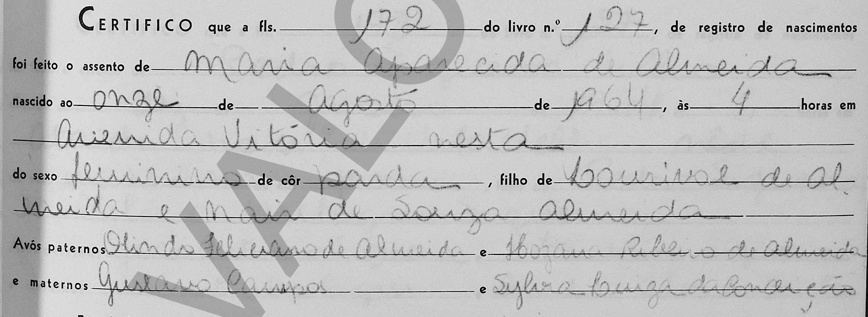 CERTIFICO que a fls. 172 do livro n.º 127, de registro de nascimentos
foi feito o assento de Maria Aparecida de Almeida
nascido ao onze de Agosto de 1964, às 4 horas em
Avenida Vitória nesta
do sexo feminino de côr parda, filho de Lourival de Al
meida e Nair de Souza Almeida
Avós paternos Olindo Feliciano de Almeida e Hozana Ribeiro de Almeida
e maternos Gustavo Campos e Sylvia Luiza da Conceição
VALO